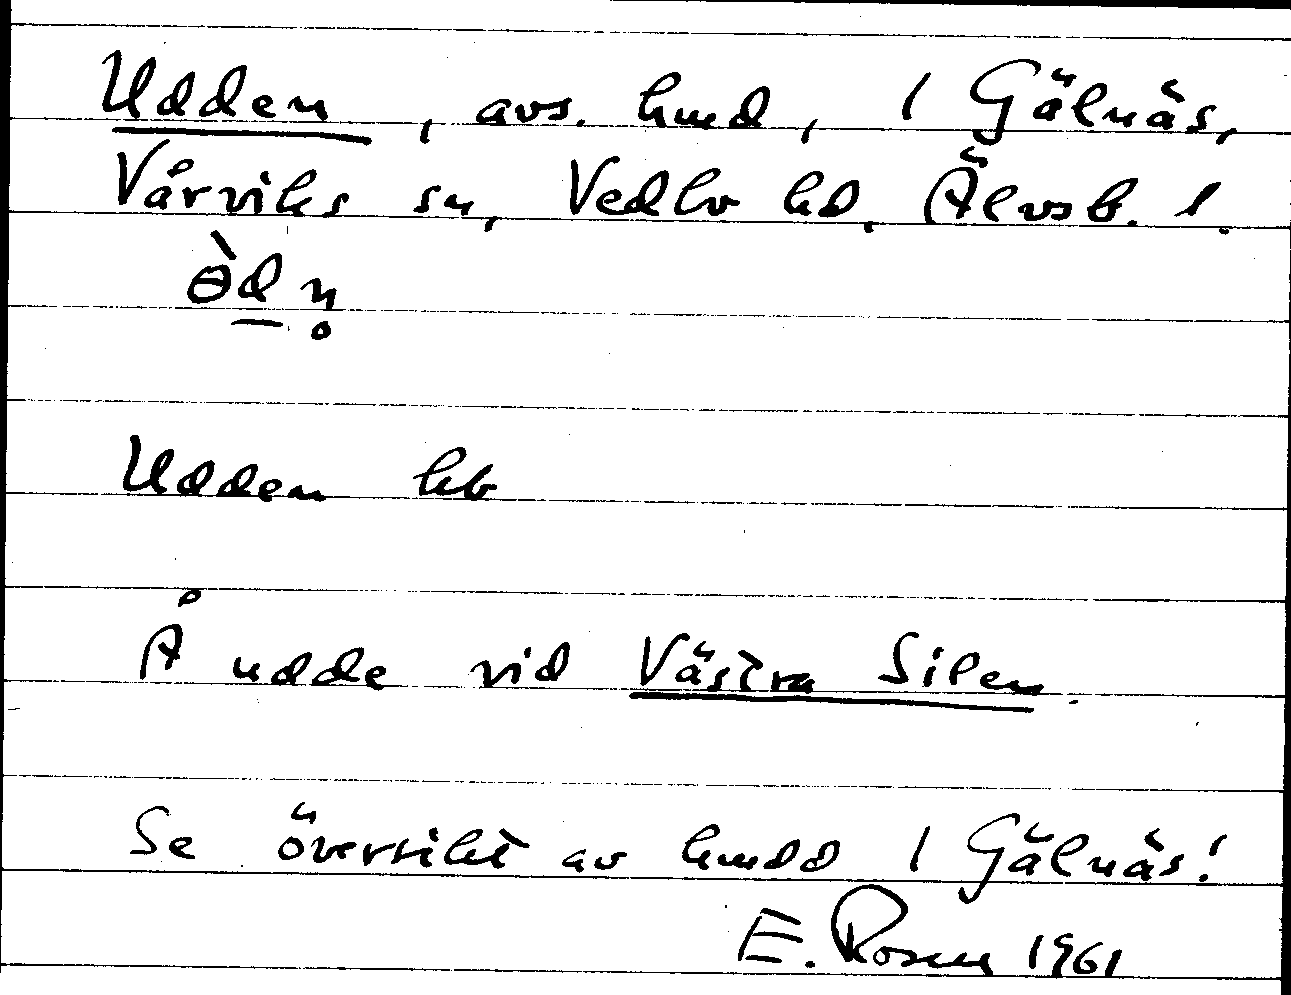 Udden, avs. hmd, 1 Gälnäs,
Vårviks sn, Vedbo hd, Älvsb. l.
ɵ̀dn̥
Udden kb
Å udde vid Västra Silen.
Se översikt av hmdd 1 Gälnäs!
E. Rosen 1961